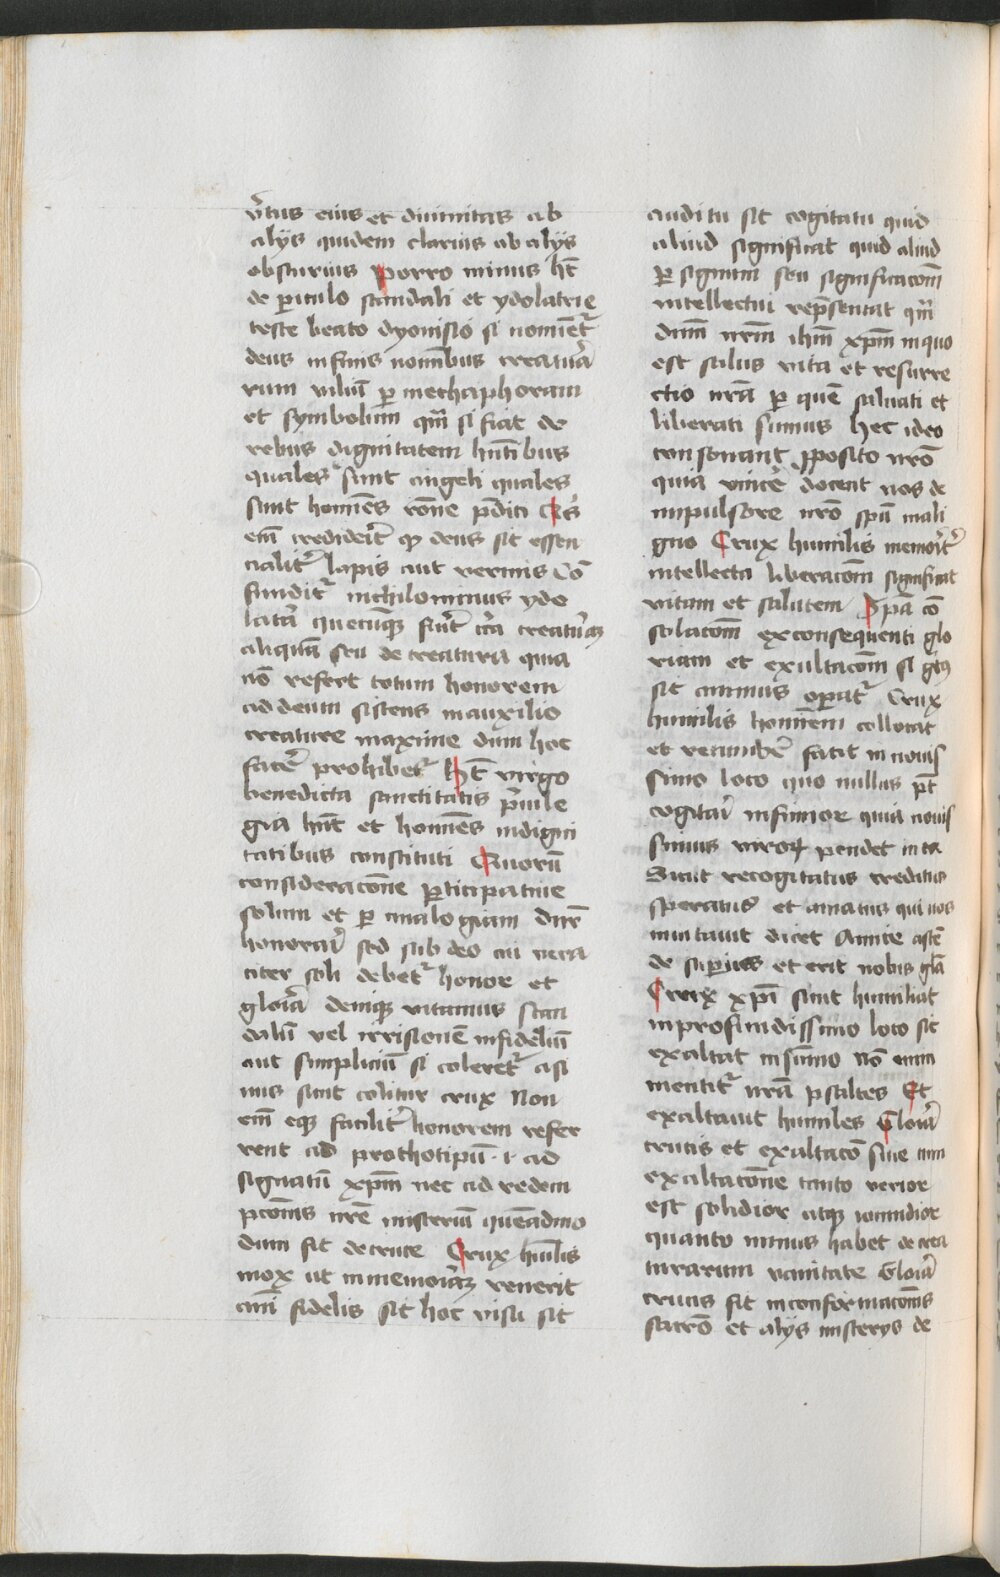 v̄tus eius et diuinitas ab
alijs quidem clarius ab alijs
obscurius Porro minus hꝫ̄t
de p̄iculo scandali et ydolatrie
teste beato dyonisio si nomiēt᷑
deus infimis nomībus creatura
rum viliū ꝑ methaphoram
et symbolum qm̄ si fiat de
rebus dignitatem hn̄tibus
quales sunt angeli quales
sunt homīes rōne p̄diti Qͥs
em̄ credideīt ꝙ deus sit essen
cialit᷑ lapis aut vermis Cō
fundit᷑ nichilominus ydo
latra quecūqꝫ fūit cͥca creat᷑am
aliquā seu de creatura quia
nō refert totum honorem
ad deum sistens in auxilio
creature maxime dum hoc
facē prohibet᷑ Hꝫ̄t virgo
benedicta sanctitatis p̄uile
gia hn̄t et homīes in digni
tatibus constituti Quorū
consideracōne ꝑticipatiue
solum et ꝑ analogiam dn̄r
honorari sed sub deo cui vera
citer soli debet᷑ honor et
gloria deniqꝫ vitamus scan
dalū vel irrisionē infideliū
aut simpliciū si coleret᷑ asi
nus sicut colitur crux Non
em̄ eqꝫ facilit᷑ honorem refer
rent ad prothotipū ·i· ad
signatū xp̄m nec ad redem
pcōnis nr̄e misteriū quēadmo
dum fit de cruce Crux hūilis
mox ut in memoriā venerit
cuiͥ fidelis sit hoc visu sit
auditu sit cogitatu quid
aliud significat quid aliud
ꝑ signum seu significacōm
intellectui rep̄sentat qm̄
dnm̄ nr̄m ihm̄ xp̄m in quo
est salus vita et resurre
ctio nr̄a ꝑ quē saluati et
liberati sumus Hec ideo
consonant ꝓposito nr̄o
quia vincē docent nos de
impulsore nr̄o spū mali
gno Crux humilis memorit᷑
intellecta liberacōm significat
vitam et salutem Sp̄a cō
solacōm ex consequenti glo
riam et exultacōm si gͣtꝰ
sit animus opatͬ Crux
humilis hominem collocat
et recumbē facit in nouis
simo loco quo nullus pt̄
cogitari infimior quia nouis
simus viroꝝ pendet in ea
Sicut recogitatus creditus
speratus et amatus qui nos
inuitauit dicet Amice ascē
de superius et erit nobis glā
Crux xp̄i sicut humiliat
in profundissimo loco sic
exaltat in sūmo nō enim
mentit᷑ nr̄a psaltes Et
exaltauit humiles Gloria
crucis et exaltacō siue eciam
exultacōne tanto verior
est solidior atqꝫ iocundior
quanto minus habet de crea
turarum vanitate Gloria
crucis fit in conformacōnis
sacrō et alijs misterijs de